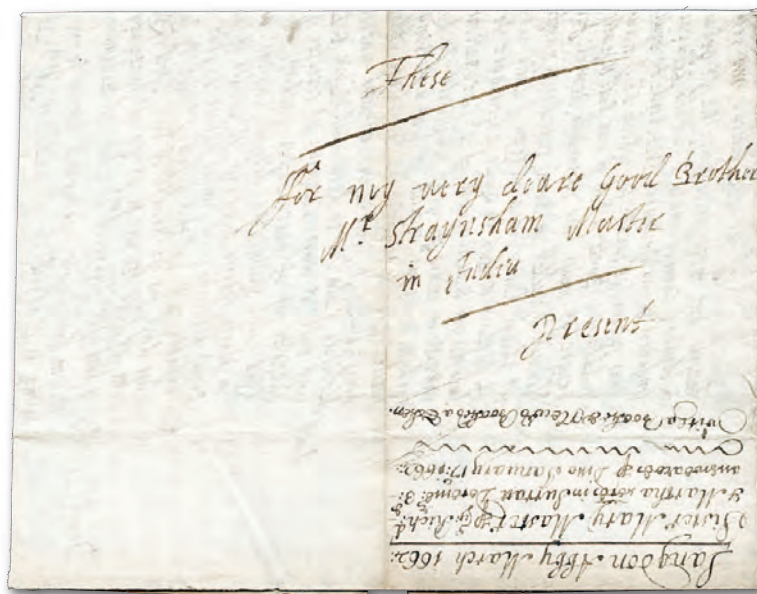 These
For my very deare Good Brother
Mr. Straynsham Master
in India
Present
Langdon Abby March 1662:
Sister Mary Master Richd
& Martha in Surratt 3:
answeared Ditto January 17: 1662:
with a Booke